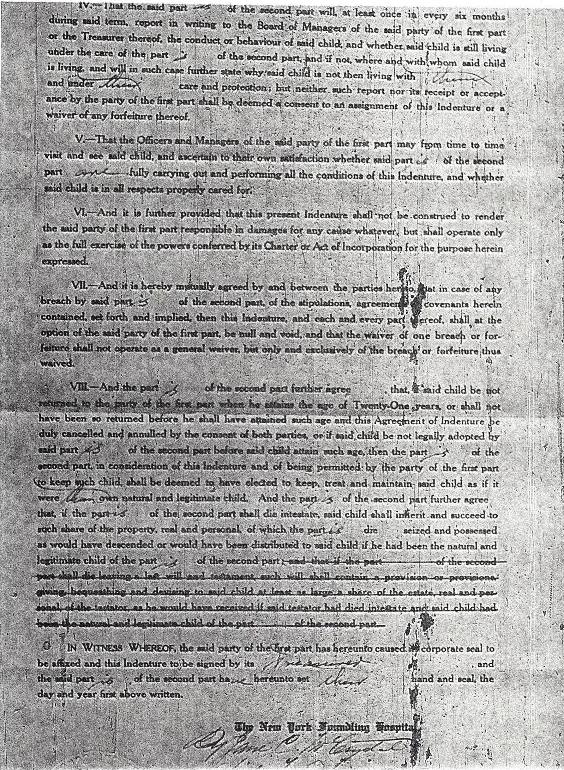 IV.—That the said part of the second part will, at least once in every six months
during said term, report in writing to the Board of Managers of the said party of the first part
or the Treasurer thereof, the conduct or behaviour of said child, and whether said child is still living
under the care of the part of the second part, and if not, where and with whom said child
is living, and will in such case further state why said child is not then living with
and under care and protection; but neither such report nor its receipt or accept-
ance by the party of the first part shall be deemed a consent to an assignment of this Indenture or a
waiver of any forfeiture thereof.
V.—That the Officers and Managers of the said party of the first part may from time to time
visit and see said child, and ascertain to their own satisfaction whether said part of the second
part are fully carrying out and performing all the conditions of this Indenture, and whether
said child is in all respects properly cared for.
VI.—And it is further provided that this present Indenture shall not be construed to render
the said party of the first part responsible in damages for any cause whatever, but shall operate only
as the full exercise of the powers conferred by its Charter or Act of Incorporation for the purpose herein
expressed.
VII.—And it is hereby mutually agreed by and between the parties hereto, that in case of any
breach by said part of the second part, of the stipulations, agreement covenants herein
contained, set forth and implied, then this Indenture, and each and every part thereof, shall at the
option of the said party of the first part, be null and void, and that the waiver of one breach or for-
feiture shall not operate as a general waiver, but only and exclusively of the breach or forfeiture thus
waived.
VIII.—And the part of the second part further agree , that, if said child be not
returned to the party of the first part when he attains the age of Twenty-One years, or shall not
have been so returned before he shall have attained such age and this Agreement of Indenture be
duly cancelled and annulled by the consent of both parties, or if said child be not legally adopted by
said part of the second part before said child attain such age, then the part of the
second part, in consideration of this Indenture and of being permitted by the party of the first part
to keep such child, shall be deemed to have elected to keep, treat and maintain said child as if it
were their own natural and legitimate child. And the part of the second part further agree
that, if the part of the second part shall die intestate, said child shall inherit and succeed to
such share of the property, real and personal, of which the part die seized and possessed
as would have descended or would have been distributed to said child if he had been the natural and
legitimate child of the part of the second part; and that if the part of the second
part shall die leaving a last will and testament, such will shall contain a provision or provisions
giving, bequeathing and devising to said child at least as large a share of the estate, real and per-
sonal, of the testator, as he would have received if said testator had died intestate and said child had
been the natural and legitimate child of the part of the second part.
IN WITNESS WHEREOF, the said party of the first part has hereunto caused its corporate seal to
be affixed and this Indenture to be signed by its Treasurer , and
the said part of the second part have hereunto set their hand and seal, the
day and year first above written.
The New York Foundling Hospital
By